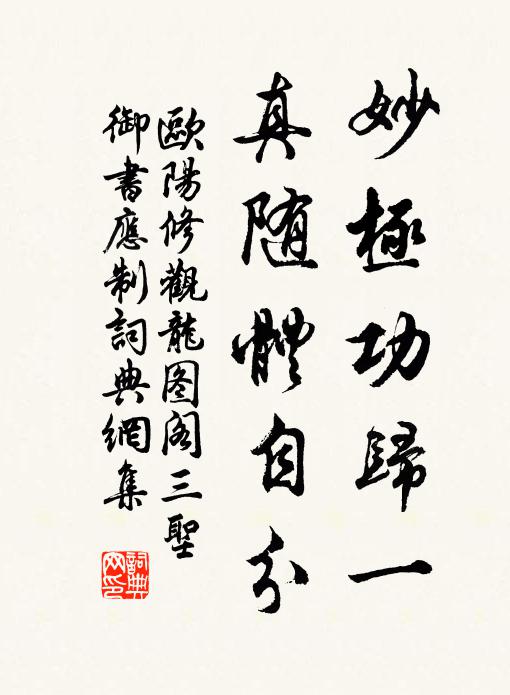 妙極功歸一
真随體自分
歐陽修觀龍图阁三聖
御書應制詞典網集
詞典网印